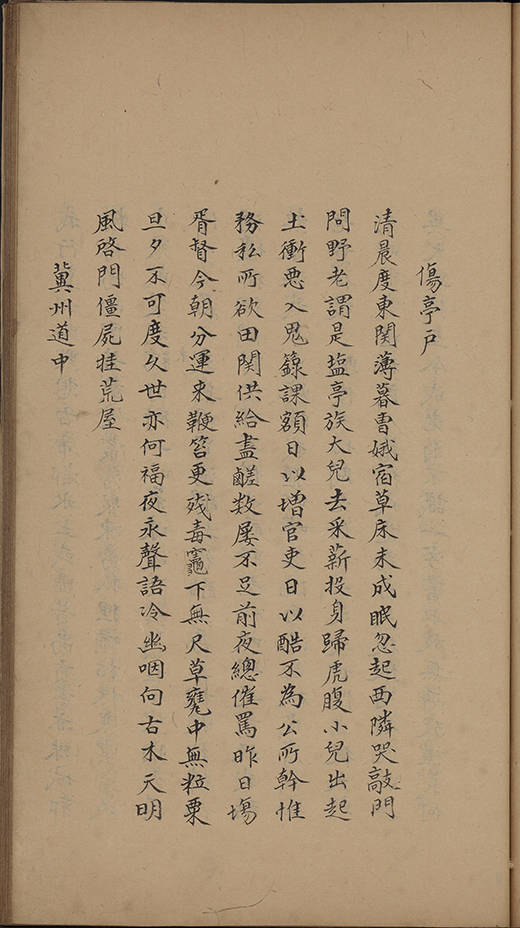 傷亭戶
清晨度東関薄暮曹娥宿草床未成眠忽起西隣哭敲門
問野老謂是塩亭族大兒去采薪投身歸虎腹小兒出起
土衝惡入鬼籙課額日以增官吏日以酷不為公所幹惟
務私所欲田関供給盡鹺数屡不足前夜總催罵昨日場
胥督今朝分運来鞭笞更残毒竈下無尺草甕中無粒粟
旦夕不可度久世亦何福夜永聲語冷幽咽向古木天明
風啓門僵屍挂荒屋
冀州道中